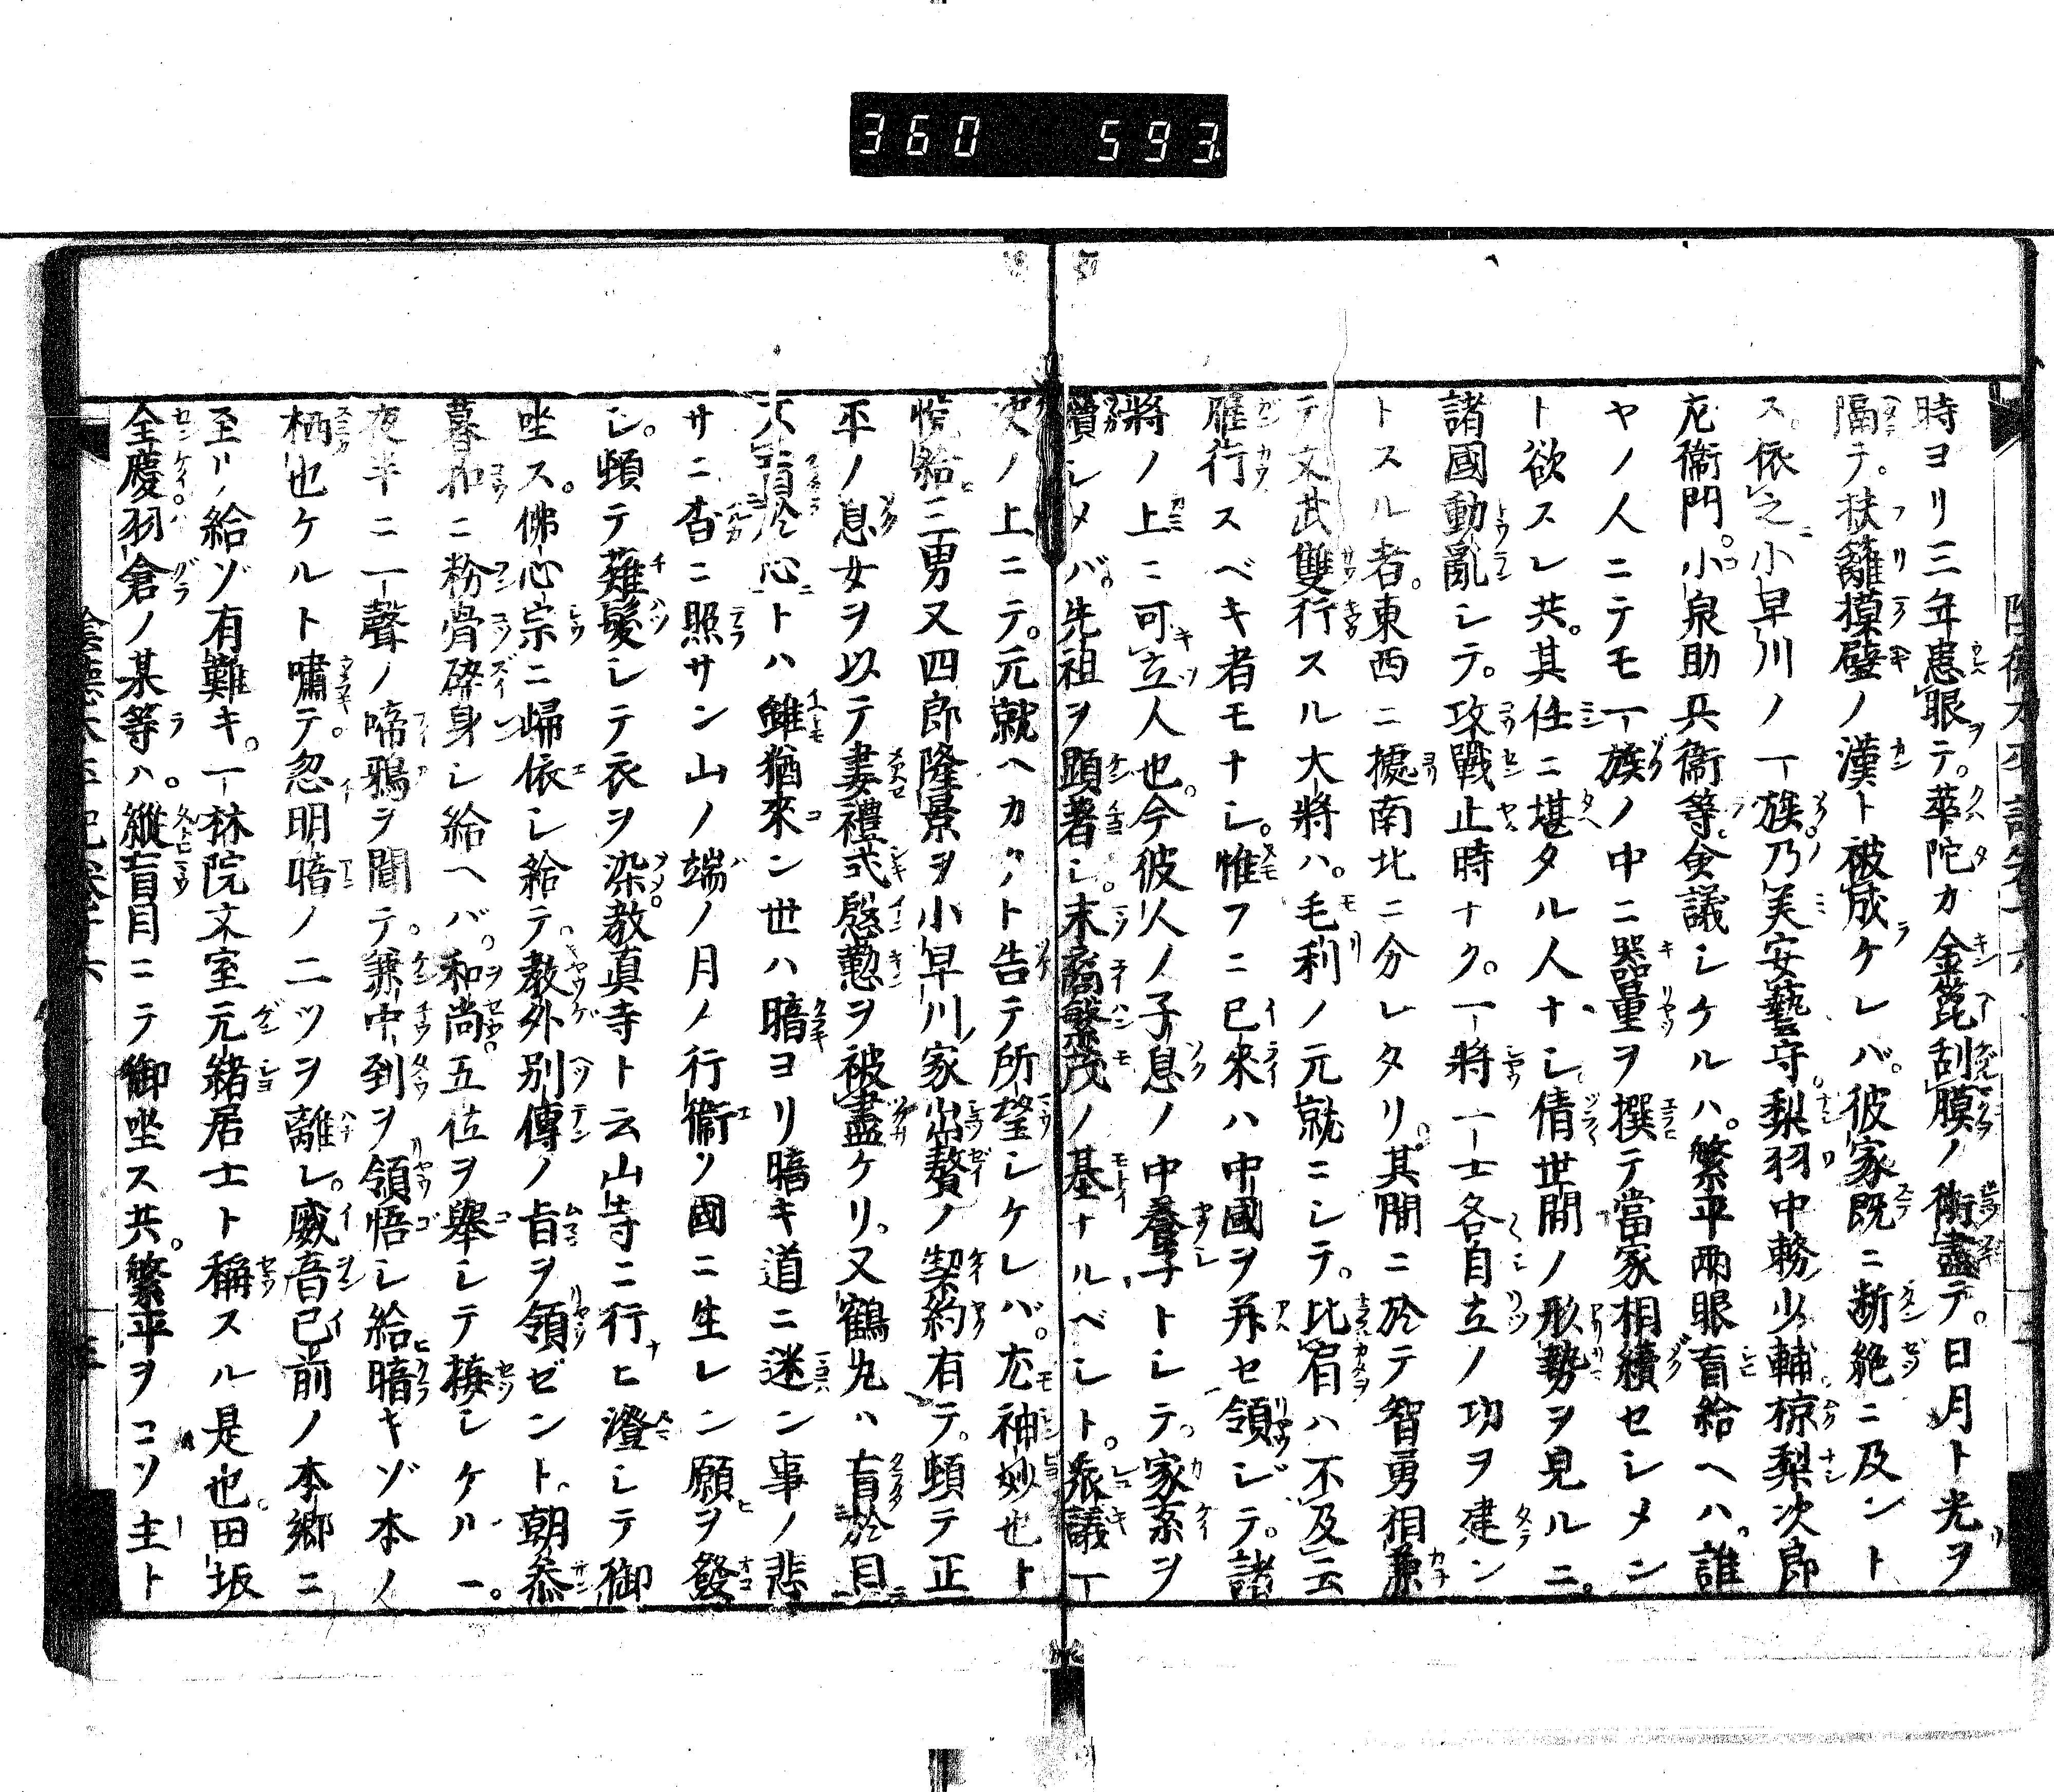 360 593
時ヨリ三年患眼テ。華陀カ金篦刮膜ノ術盡テ。日月ト光ヲ
隔テ。扶籬摸壁ノ漢ト被成ケレバ。彼家既ニ断絶ニ及ント
ス。依之小早川ノ一族乃美安藝守。梨羽中務少輔椋梨次郎
左衞門。小泉助兵衞等僉議シケルハ。繁平兩眼盲給ヘハ。誰
ヤノ人ニテモ一族ノ中ニ器量ヲ撰テ當家相續セシメン
ト欲スレ共。其任ニ堪タル人ナシ倩世間ノ形勢ヲ見ルニ。
諸國動亂シテ。攻戰止時ナク。一將一士各自立ノ功ヲ建ン
トスル者。東西ニ據南北ニ分レタリ。其間ニ於テ智勇相兼
テ文武雙行スル大將ハ。毛利ノ元就ニシテ。比肩ハ不及云
雁行スベキ者モナシ。惟フニ已來ハ中國ヲ并セ領ジテ。諸
將ノ上ニ可立人也。今彼人ノ子息ノ中養子トシテ。家系ヲ
續シメバ。先祖ヲ顕著シ。末裔繁茂ノ基ナルベシト。衆議一
决ノ上ニテ。元就ヘカクト告テ所望シケレバ。尤神妙也ト
悦給三男又四郎隆景ヲ小早川家出贅ノ契約有テ。頓テ正
平ノ息女ヲ以テ妻禮式慇懃ヲ被盡ケリ。又鶴丸ハ盲於目
不盲於心トハ雖猶來ン世ハ暗ヨリ暗キ道ニ迷ン事ノ悲
サニ杳ニ照サン山ノ端ノ月ノ行衞ソ國ニ生レン願ヲ發
シ。頓テ薙髪シテ衣ヲ染教真寺ト云山寺ニ行ヒ澄シテ御
坐ス。佛心宗ニ歸依シ給テ。教外別傳ノ旨ヲ領ゼント。朝叅
暮扣ニ粉骨砕身シ給ヘバ。和尚。五位ヲ擧シテ接シケルニ。
夜半ニ一聲ノ啼鴉ヲ聞テ。兼中到ヲ領悟シ給暗キゾ本ノ
栖也ケルト嘯テ。忽明暗ノ二ツヲ離レ。威音已前ノ本郷ニ
至リ給ゾ有難キ。一林院文室元緒居士ト稱スル是也。田坂
全慶羽倉ノ某等ハ。縱盲目ニテ御坐ス共。繁平ヲコソ主ト